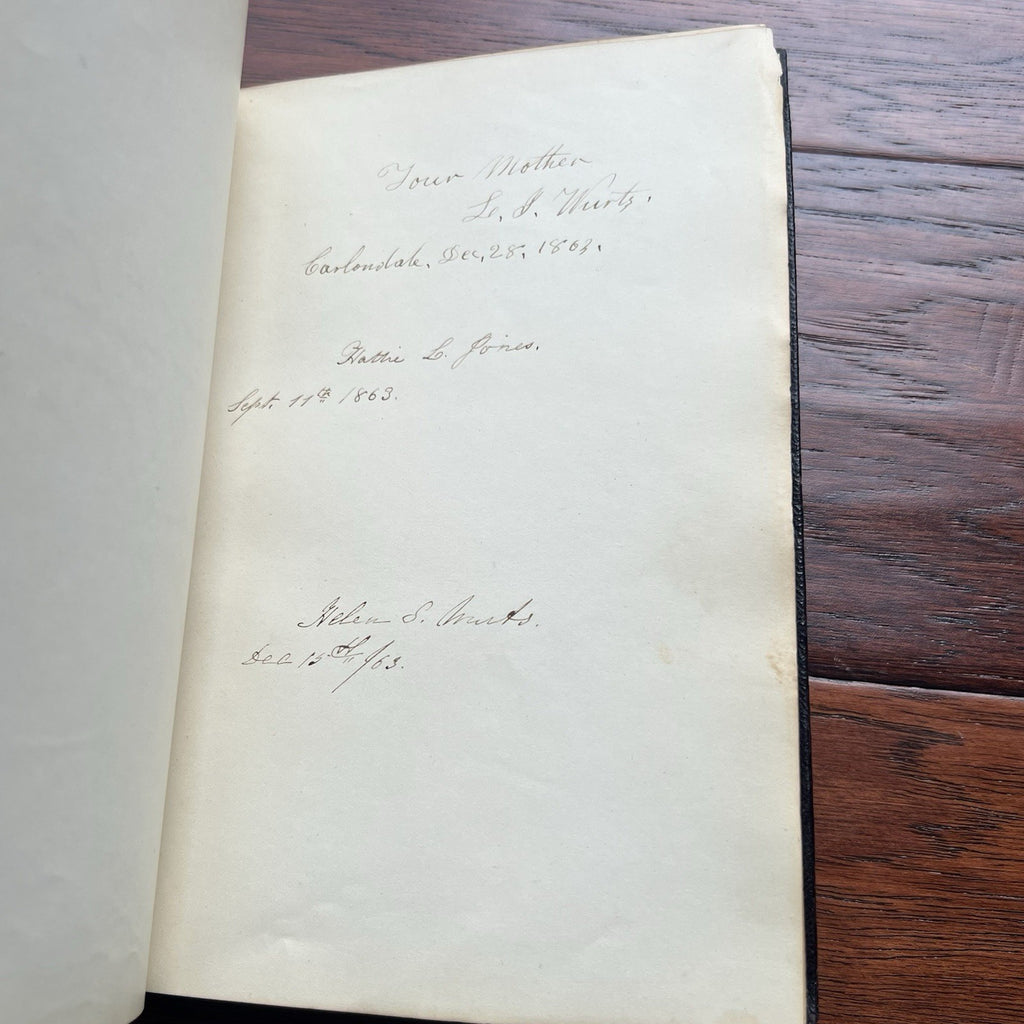 Your Mother
L. J. Wurts.
Carbondale, Dec, 28, 1863.
Hattie L. Jones.
Sept. 11th 1863.
Helen S. Wurts.
Dec 15th /63.